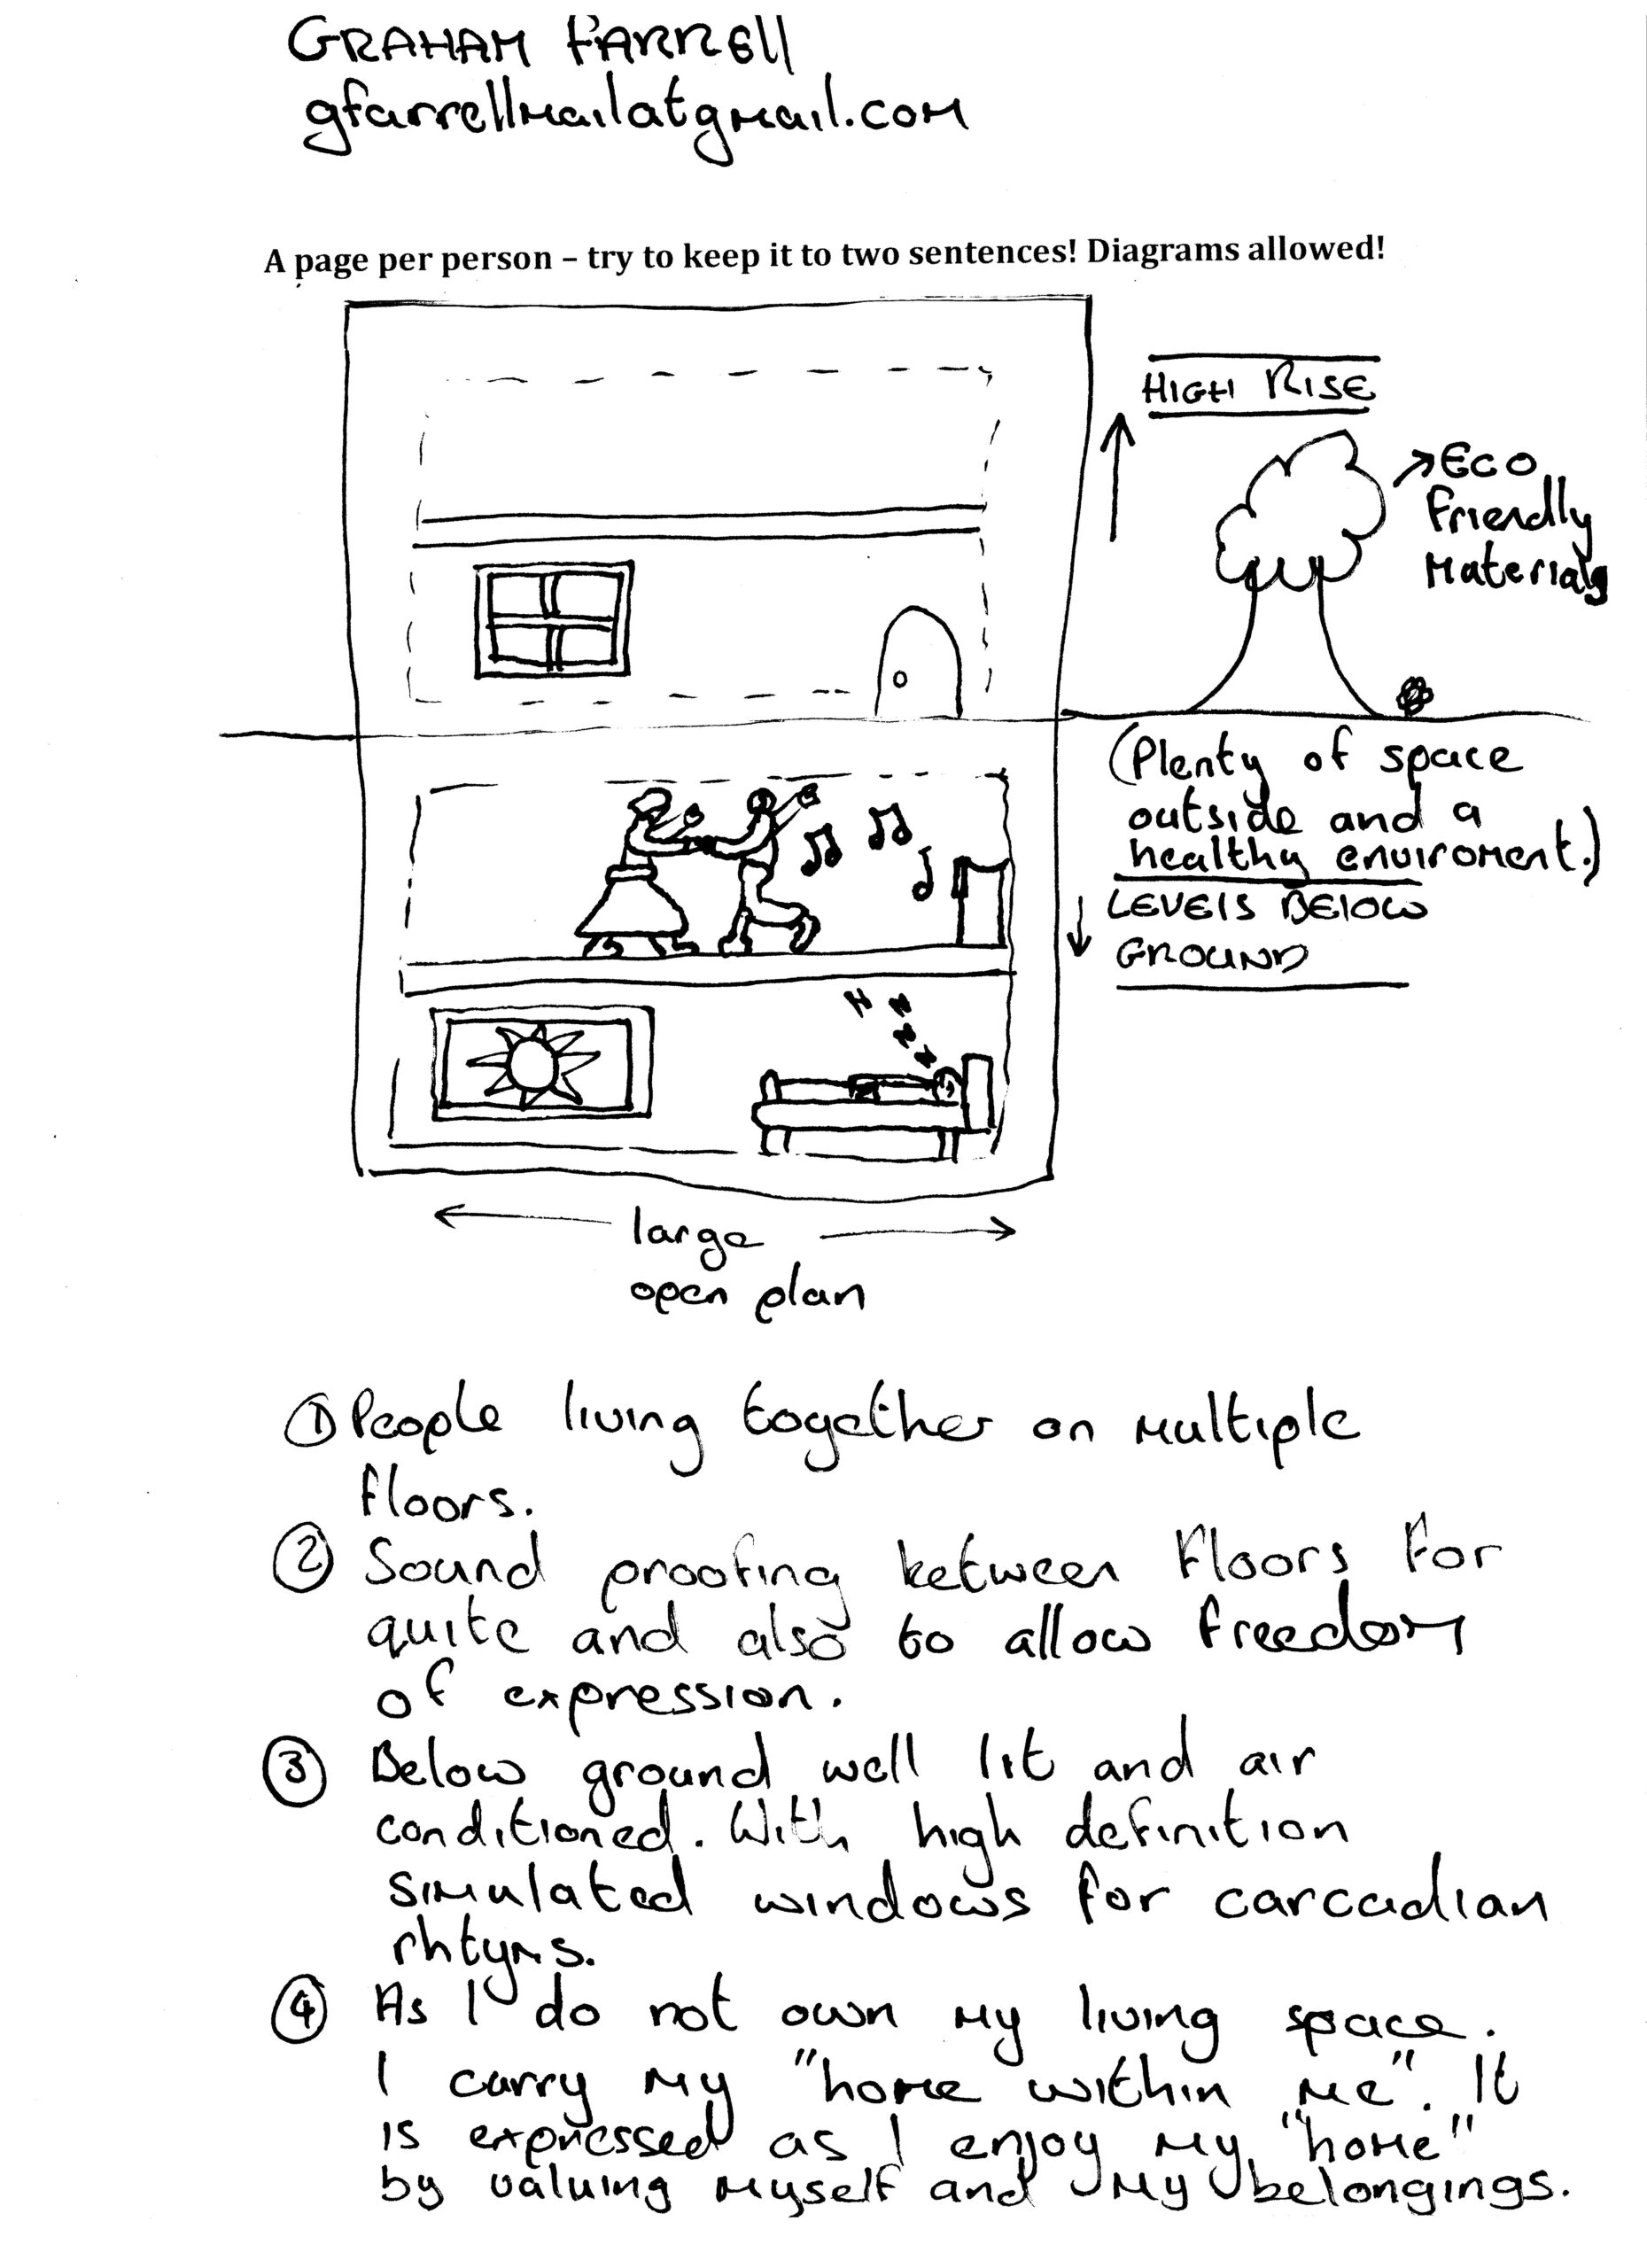 GRAHAM FARRELL
gfarrellmailatgmail.com
A page per person – try to keep it to two sentences! Diagrams allowed!
HIGH RISE
ECO
friendly
Materials
(Plenty of space
outside and a
healthy enviroment.)
LEVELS BELOW
GROUND
large
open plan
① People living together on multiple
floors.
② Sound proofing between floors for
quite and also to allow freedom
of expression.
③ Below ground well lit and air
conditioned. With high definition
simulated windows for carcadian
rhtyms.
④ As I do not own my living space.
I carry my "home within me". It
is expressed as I enjoy my "home"
by valuing myself and my belongings.